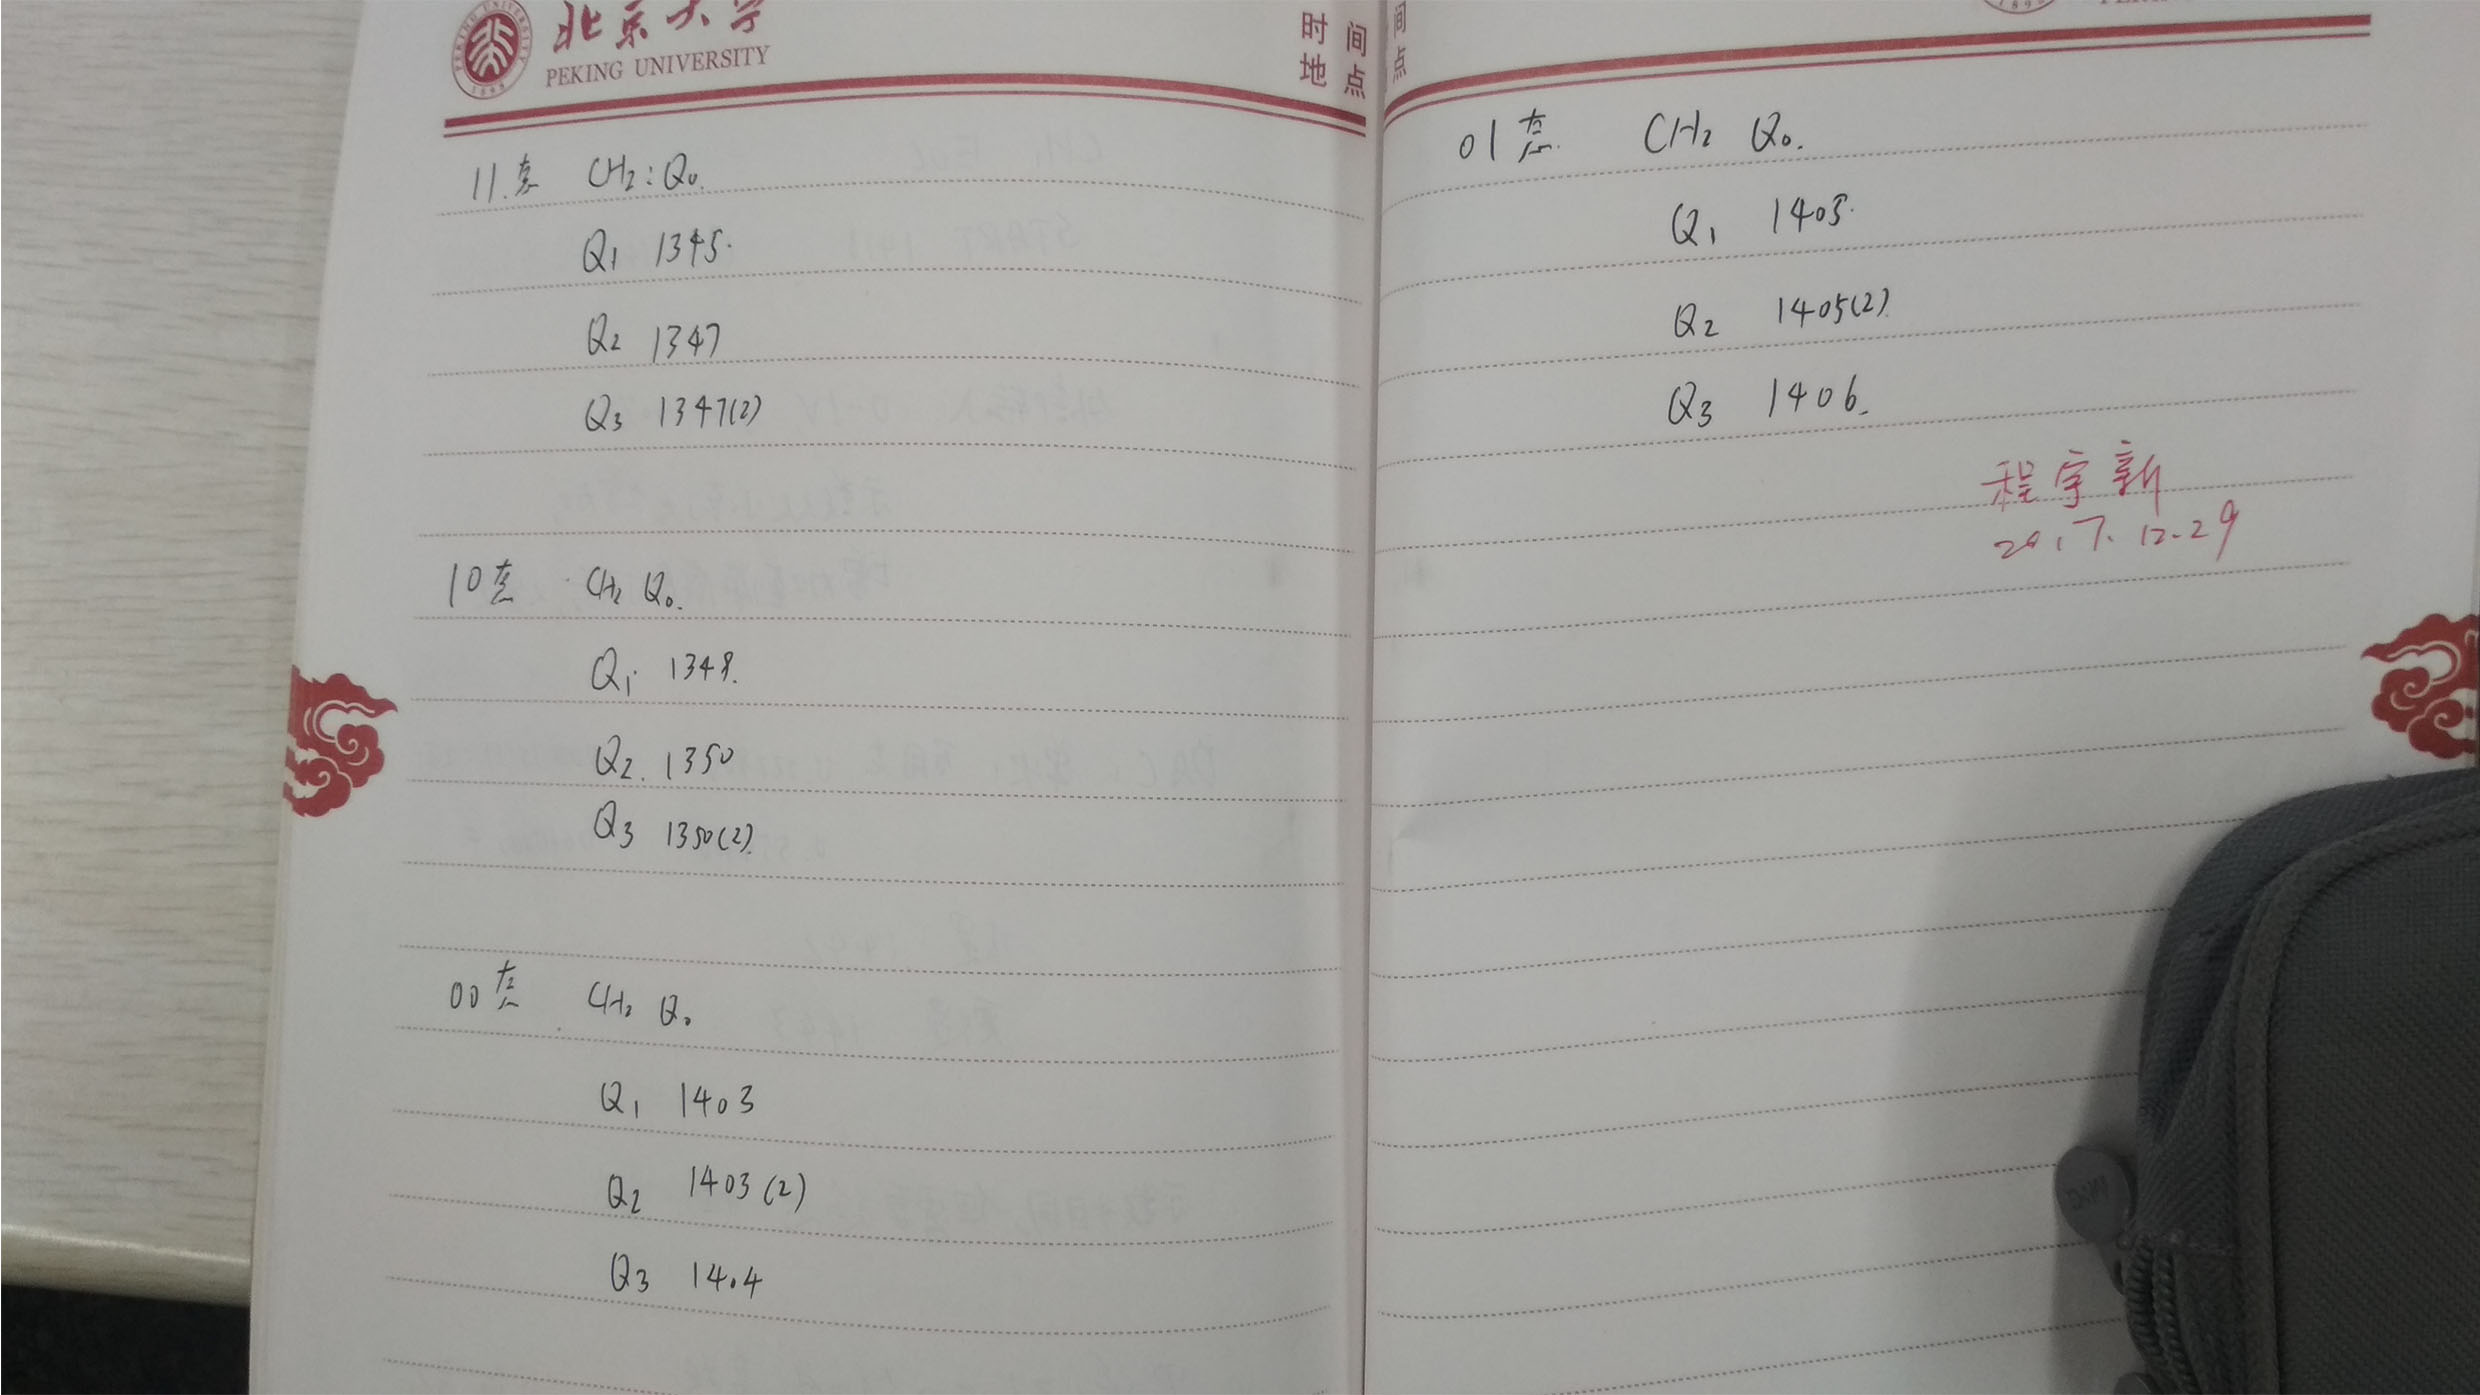 北京大学
PEKING UNIVERSITY
时间
地点
11态 CH2:Q0.
Q1 1345.
Q2 1347
Q3 1347(2)
10态 CH2 Q0.
Q1 1348.
Q2. 1350
Q3 1350(2)
00态 CH2 Q0
Q1 1403
Q2 1403(2)
Q3 1404
间
点
01态 CH2 Q0.
Q1 1405.
Q2 1405(2)
Q3 1406.
程宇新
2017.12.29